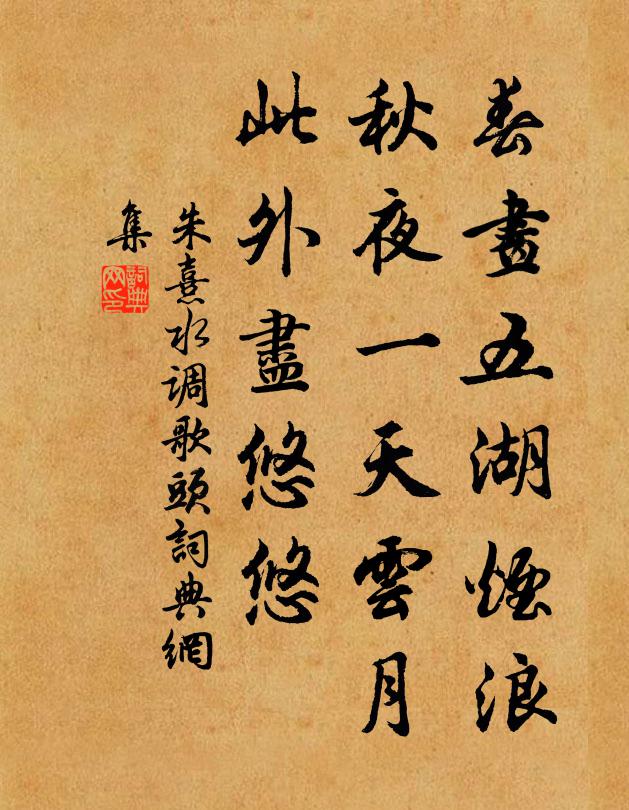 春晝五湖煙浪
秋夜一天雲月
此外盡悠悠
朱熹水调歌頭詞典網
集
詞典網印